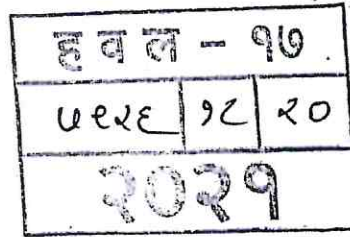 हवल - १७
५९२६ १८ २०
२०२१